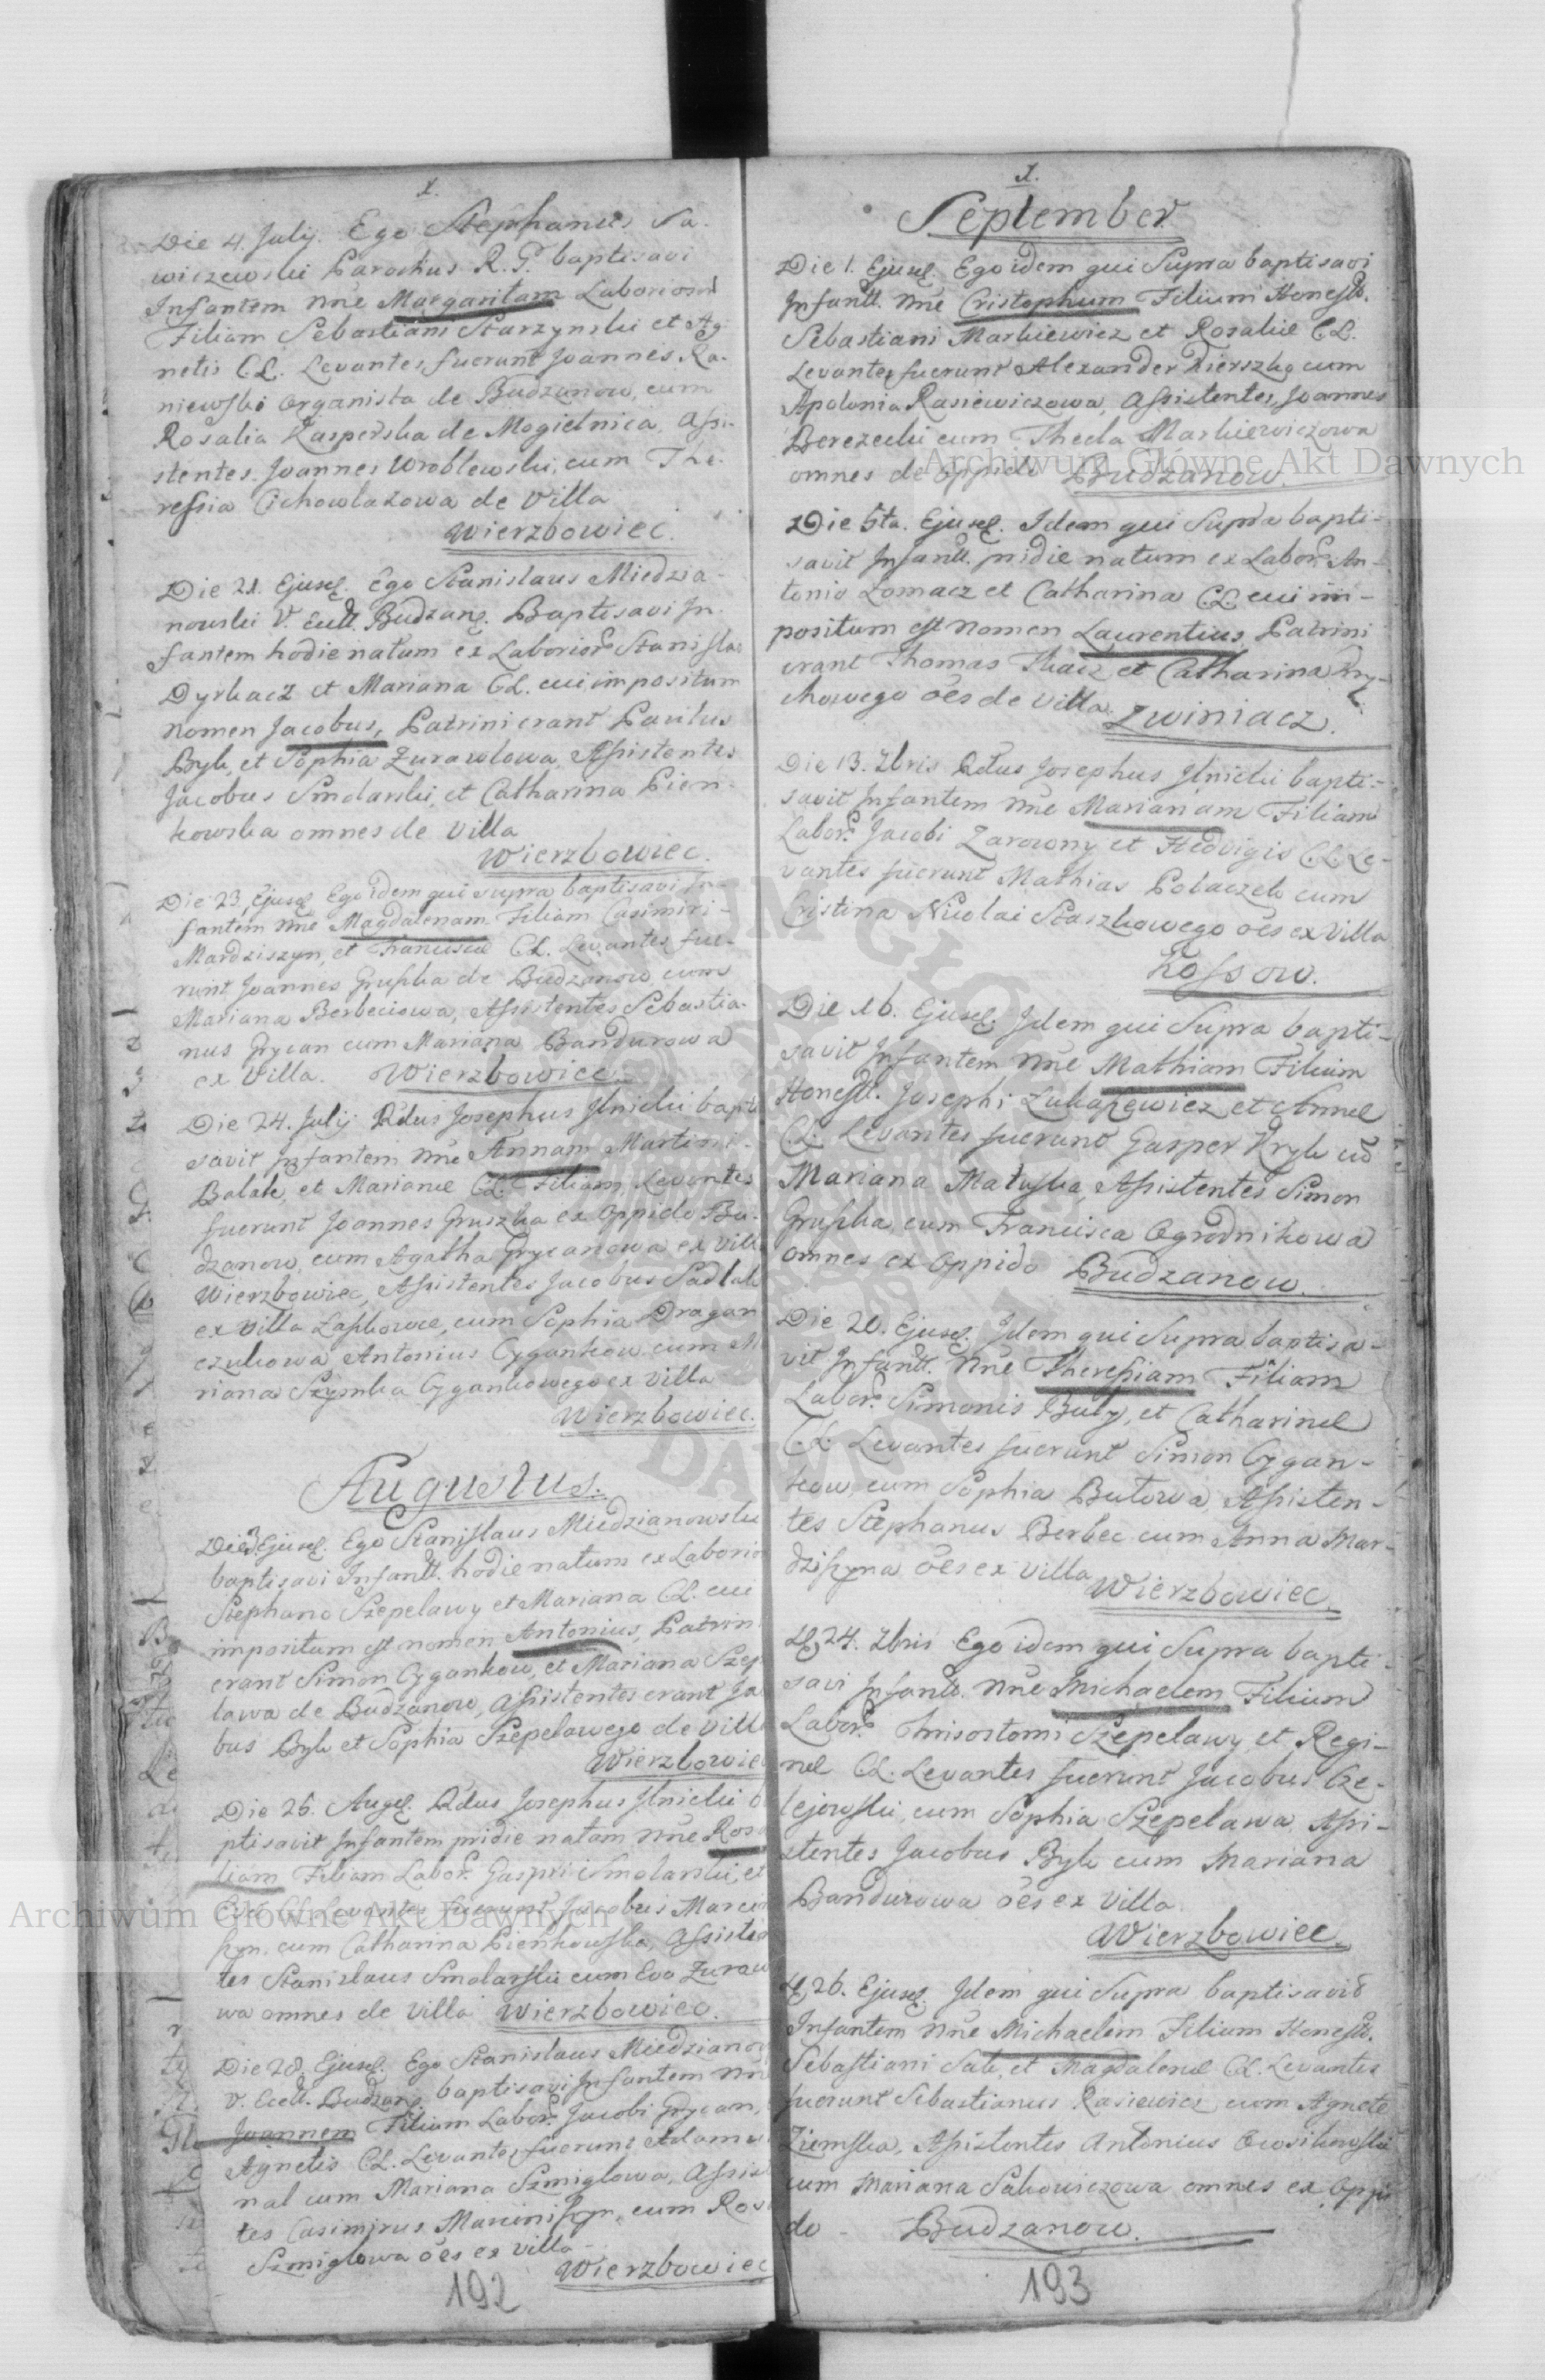 1.
Die 4. July. Ego Stephanus Sa-
wiczewski Parochus R. G. baptisavi
Infantem nne Margaritam Laborios
Filiam Sebastiani Starzynski et Ag-
netis CL. Levantes fuerunt Joannes Ra-
niewski Organista de Budzanow, cum
Rosalia Kasperska de Mogielnica, Assi-
stentes Joannes Wroblewski, cum The-
ressia Cichowlazowa de Villa
Wierzbowiec.
Die 21. Ejusd. Ego Stanislaus Miedzia-
nowski V. Eccl. Budzan. Baptisavi In-
fantem hodie natum ex Laborios Stanislao
Dyrkacz et Mariana CL. cui impositum
nomen Jacobus, Patrini erant Paulus
Byk, et Sophia Zurawlowa, Assistentes
Jacobus Smolarski, et Catharina Pien-
kowska omnes de Villa
Wierzbowiec.
Die 23. Ejusd. Ego idem qui supra baptisavi In-
fantem nne Magdalenam Filiam Casimiri
Mardziszyn, et Francisca CL. Levantes fue-
runt Joannes Gruszka de Budzanow cum
Mariana Berbeciowa, Assistentes Sebastia-
nus Grycan cum Mariana Bandurowa
ex Villa. Wierzbowiec.
Die 24. July Rdus Josephus Ilnicki bapti
savit Infantem nne Annam Martini
Balak, et Marianæ CL. Filiam, Levantes
fuerunt Joannes Gruszka ex Oppido Bu-
dzanow, cum Agatha Grycanowa ex Vill
Wierzbowiec, Assistentes Jacobus Sadlak
ex Villa Laskowce, cum Sophia Dragan
czukowa Antonius Cygankow cum M
riana Szymka Cygankowego ex Villa
Wierzbowiec.
Augustus.
Die 3 Ejusd. Ego Stanislaus Miedzianowski
baptisavi Infant. hodie natum ex Laborio
Stephano Szepelawy et Mariana CL. cui
impositum est nomen Antonius, Patrin
erant Simon Cygankow, et Mariana Szep
lawa de Budzanow, Assistentes erant Ja
bus Byk et Sophia Szepelawego de Vill
Wierzbowiec
Die 26. Augd. Rdus Josephus Ilnicki b
ptisavit Infantem pridie natam nne Rosa
liam Filiam Labor. Gaspri Smolarski, et
Evæ CL. Levantes fuerunt Jacobus Marcin
szyn. cum Catharina Pienkowska, Assisten
tes Stanislaus Smolarski cum Eva Zuraw
wa omnes de Villa Wierzbowiec.
Die 28. Ejusd. Ego Stanislaus Miedzianow
V. Eccl. Budzan. baptisavi Infantem nne
Joannem Filium Labor. Jacobi Grycan,
Agnetis CL. Levantes fuerunt Adamus
nal cum Mariana Szmiglowa, Assis
tes Casimirus Marciniszyn, cum Ros
Szmiglowa oes ex Villa
Wierzbowiec
192
1.
September
Die 1. Ejusd. Ego idem qui Supra baptisavi
Infant. nne Cristophum Filium Honest.
Sebastiani Markiewicz et Rosaliæ CL.
Levantes fuerunt Alexander Kierszka cum
Apolonia Rasiewiczowa, Assistentes, Joannes
Berezecki cum Thecla Markiewiczowa
omnes de Oppido Budzanow.
Die 5ta. Ejusd. Idem qui Supra bapti-
savit Infant. pridie natum ex Labor. An-
tonio Lomacz et Catharina CL. cui im-
positum est nomen Laurentius, Patrini
erant Thomas Tkacz et Catharina Kry-
chowego oes de Villa. Zwiniacz.
Die 13. 7bris Rdus Josephus Ilnicki bapti-
savit Infantem nne Mariannam Filiam
Labor. Jacobi Zarowny et Hedvigis CL. Le-
vantes fuerunt Mathias Polaczek cum
Cristina Nicolai Staszkowego oes ex Villa
Kossow.
Die 16. Ejusd. Idem qui Supra bapti-
savit Infantem nne Mathiam Filium
Honest. Josephi Lukasiewicz et Annæ
CL. Levantes fuerunt Gasper Kryk cu
Mariana Matuska, Assistentes Simon
Gruszka, cum Francisca Ogrodnikowa
omnes ex Oppido Budzanow.
Die 20. Ejusd. Idem qui Supra baptisa-
vit Infant. nne Theressiam Filiam
Labor. Simonis Buty, et Catharinæ
CL. Levantes fuerunt Simon Cygan-
kow, cum Sophia Butowa, Assisten-
tes Stephanus Berbec cum Anna Mar-
dziszyna oes ex Villa
Wierzbowiec.
D. 24. 7bris Ego idem qui Supra bapti-
savi Infant. nne Michaelem Filium
Labor. Chrisostomi Szepelawy et Regi-
næ CL. Levantes fuerunt Jacobus Cze-
lejowski, cum Sophia Szepelawa Assi-
stentes Jacobus Byk cum Mariana
Bandurowa oes ex Villa
Wierzbowiec.
D. 26. Ejusd. Idem qui Supra baptisavit
Infantem nne Michaelem Filium Honest.
Sebastiani Sak, et Magdalenæ CL. Levantes
fuerunt Sebastianus Rasiewicz cum Agnete
Ziemska, Assistentes Antonius Owsikowski
cum Mariana Sakowiczowa omnes ex Oppi
do - Budzanow.
193
Archiwum Główne Akt Dawnych
Archiwum Główne Akt Dawnych